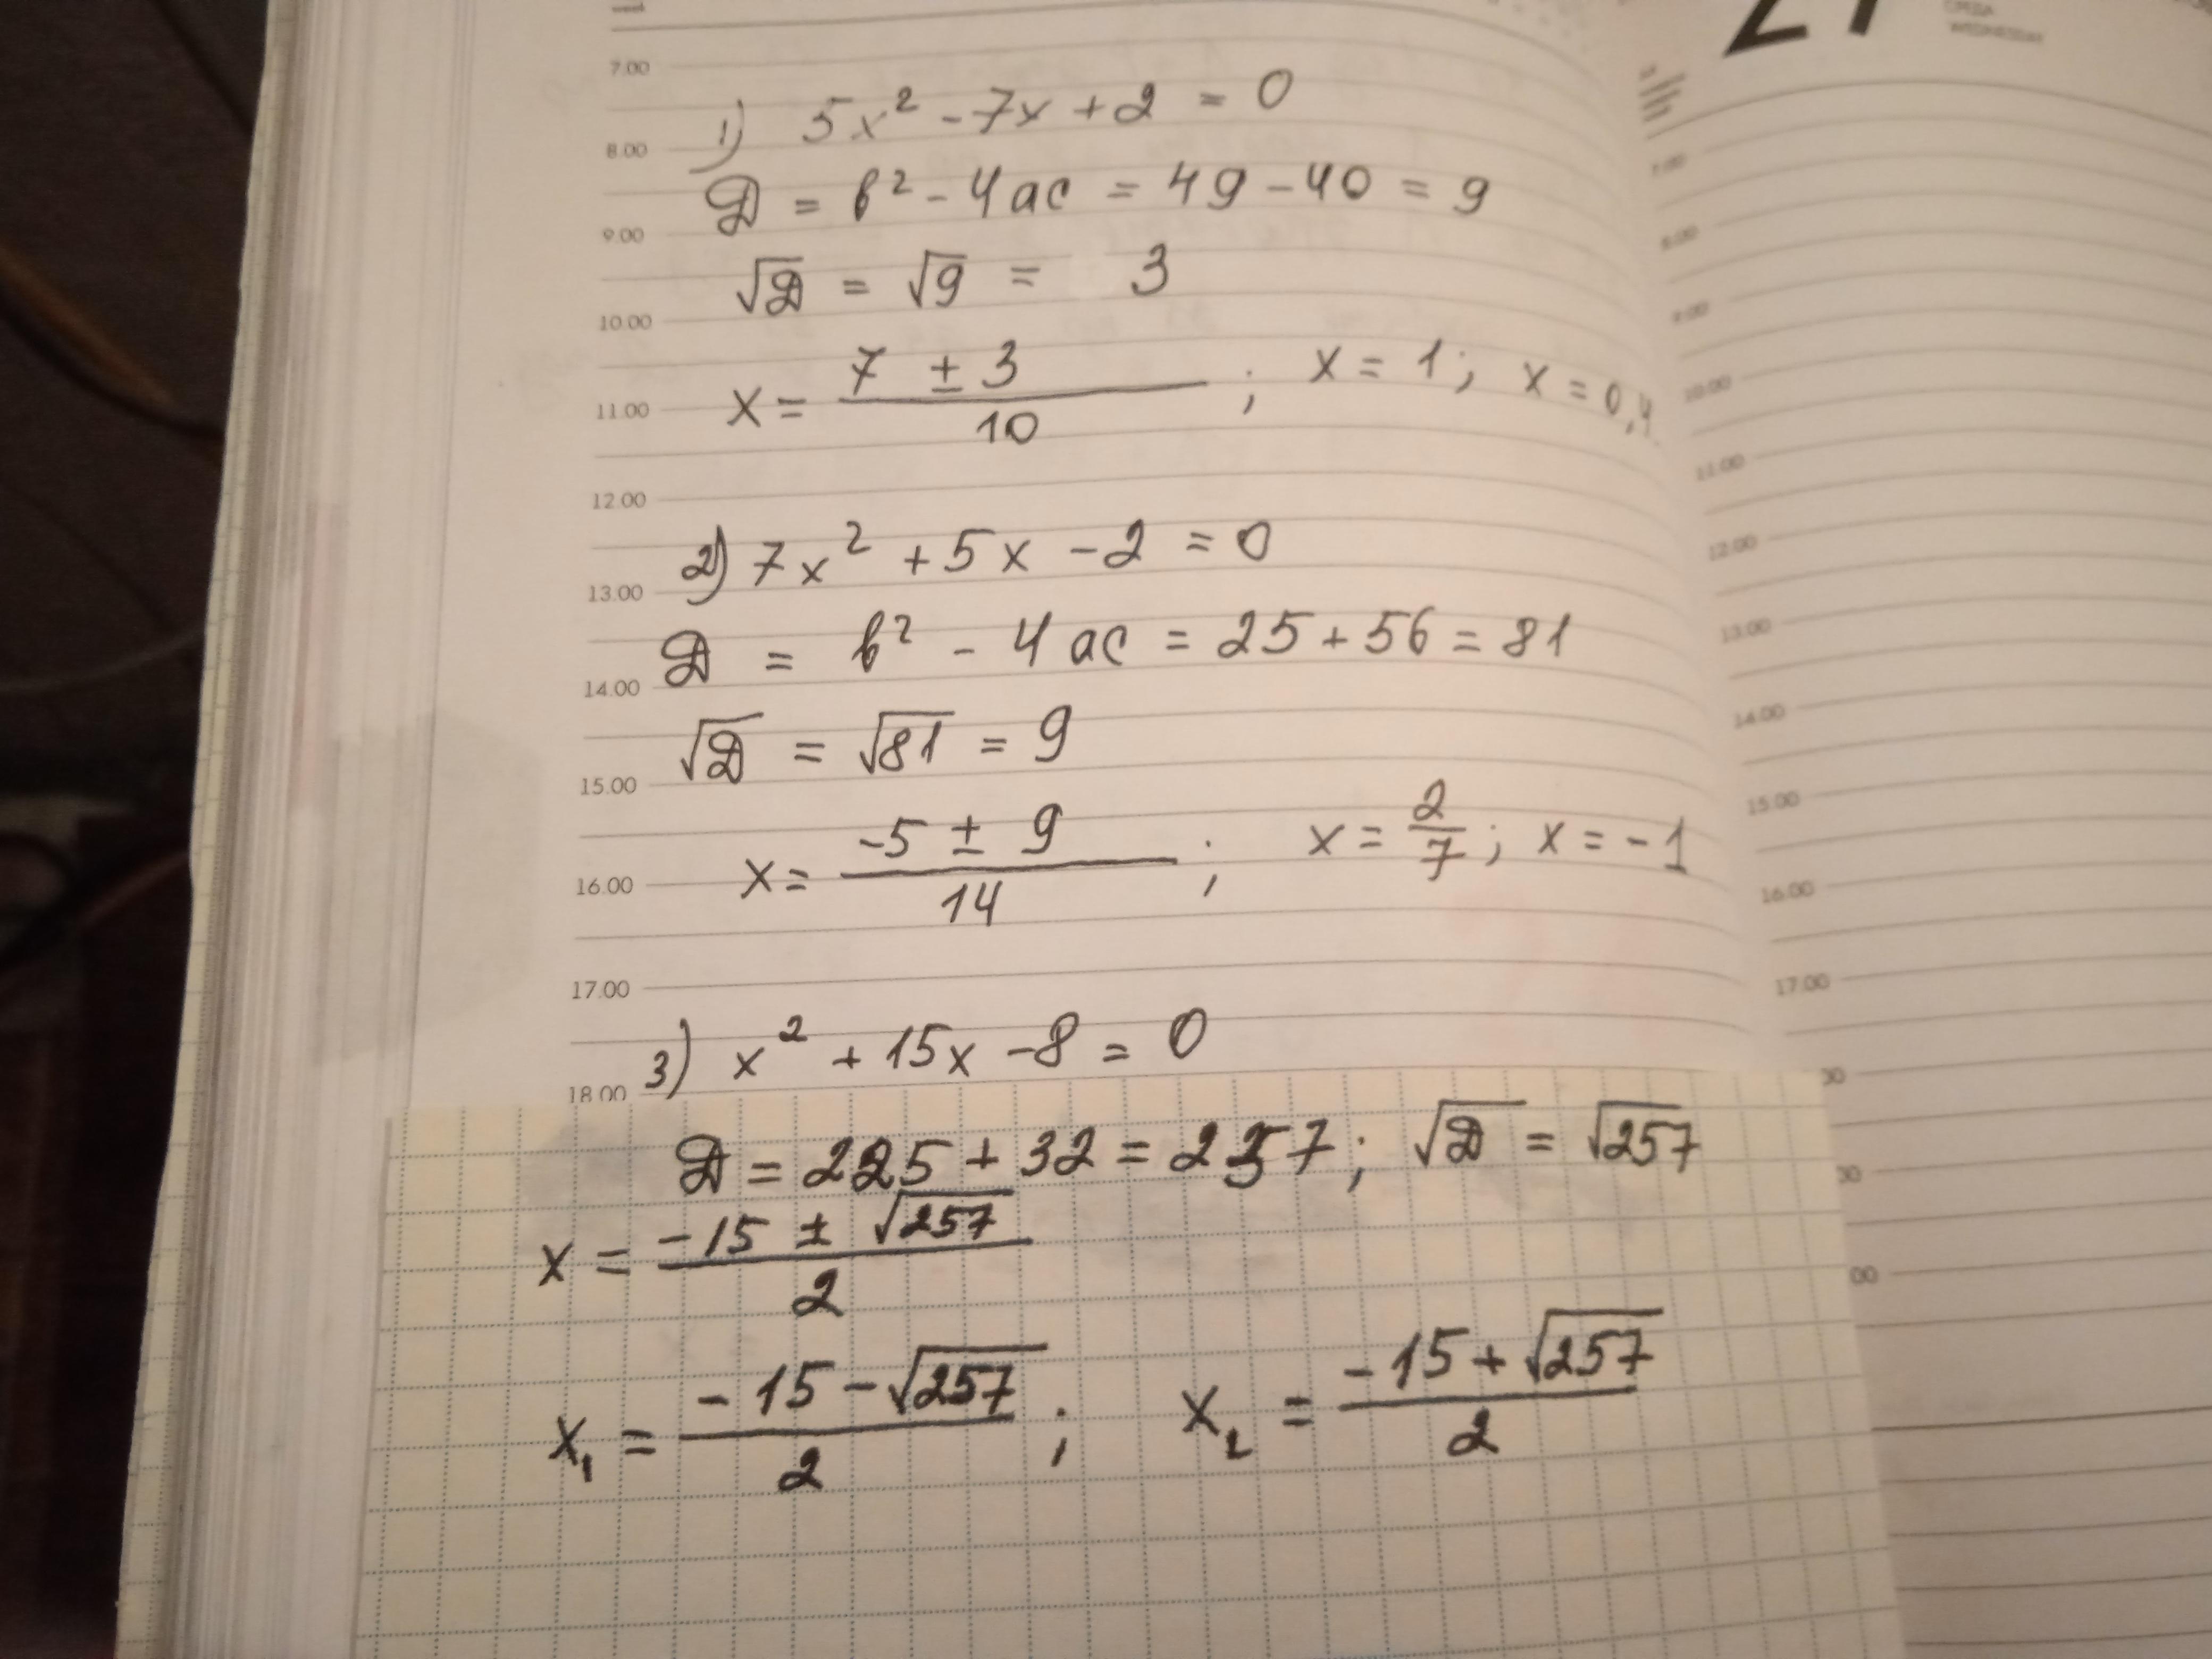 21
СРЕДА
WEDNESDAY
7.00
1) 5x² - 7x + 2 = 0
8.00
D = b² - 4ac = 49 - 40 = 9
9.00
√D = √9 = 3
10.00
x = (7 ± 3)/10 ; x = 1; x = 0,4
11.00
12.00
2) 7x² + 5x - 2 = 0
13.00
D = b² - 4ac = 25 + 56 = 81
14.00
√D = √81 = 9
15.00
x = (-5 ± 9)/14 ; x = 2/7 ; x = -1
16.00
17.00
3) x² + 15x - 8 = 0
18.00
D = 225 + 32 = 257; √D = √257
x = (-15 ± √257)/2
x₁ = (-15 - √257)/2 ; x₂ = (-15 + √257)/2
7.00
8.00
9.00
10.00
11.00
12.00
13.00
14.00
15.00
16.00
17.00
00
00
00